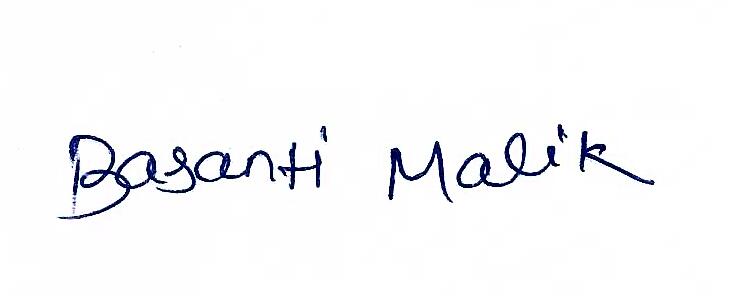 Basanti Malik